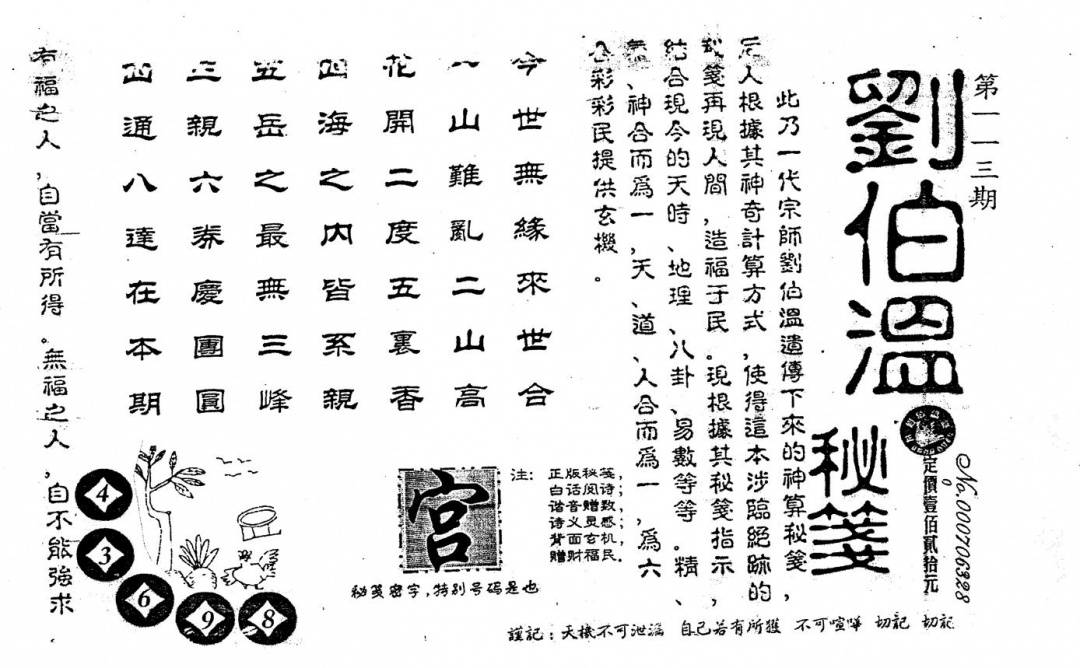 第一一三期
劉伯溫
秘箋
No.000706328
定價壹佰貳拾元
此乃一代宗師劉伯溫遺傳下來的神算秘箋,
后人根據其神奇計算方式,使得這本涉臨絕跡的
秘箋再現人間,造福于民。現根據其秘箋指示,
結合現今的天時、地理、八卦、易數等等。精、
氣、神合而爲一,天、道、人合而爲一,爲六
合彩彩民提供玄機。
今世無緣來世合
一山難亂二山高
花開二度五裏香
四海之内皆系親
五岳之最無三峰
三親六券慶團圓
四通八達在本期
有福之人,自當有所得。無福之人,自不能強求
注:
正版秘笺,
白话阅诗;
谐音赠数,
诗义灵感;
背面玄机,
赠财福民。
宫
秘笺密字,特别号码是也
4
3
6
9
8
謹記:天機不可泄漏 自己若有所獲 不可喧嘩 切記 切記